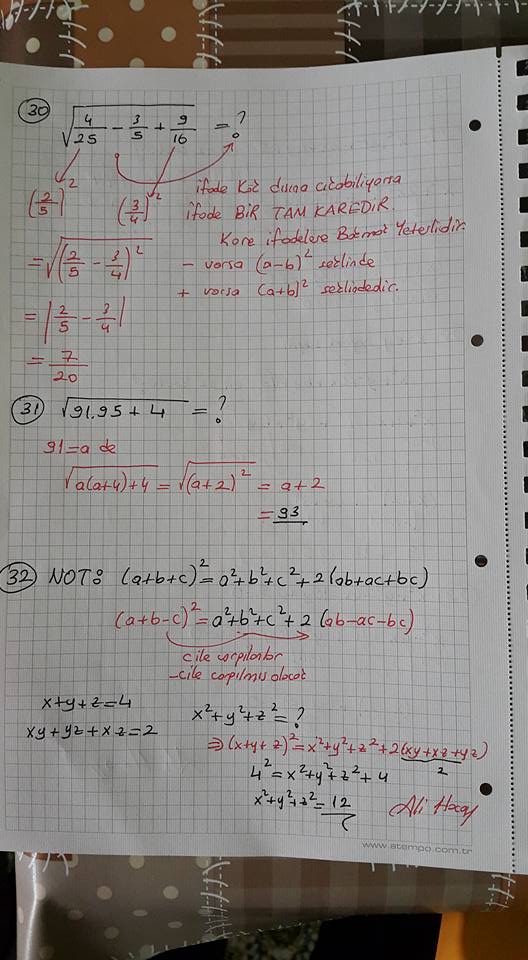 30 √(4/25 - 3/5 + 9/16) = ?
(2/5)² (3/4)² ifade Kök dışına çıkabiliyorsa
ifade BİR TAM KAREDİR.
Kare ifadelere Bakmak Yeterlidir.
= √((2/5 - 3/4)²) - varsa (a-b)² şeklinde
+ varsa (a+b)² şeklindedir.
= |2/5 - 3/4|
= 7/20
31 √(91.95 + 4) = ?
91=a de
√(a(a+4)+4) = √((a+2)²) = a+2
= 93
32 NOT: (a+b+c)² = a²+b²+c²+2(ab+ac+bc)
(a+b-c)² = a²+b²+c²+2(ab-ac-bc)
c ile çarpılanlar
-c ile çarpılmış olacak
x+y+z=4
xy+yz+xz=2
x²+y²+z²=?
⇒(x+y+z)²=x²+y²+z²+2(xy+xz+yz)
2
4²=x²+y²+z²+4
x²+y²+z²=12
Ali Hoca
www.atempo.com.tr